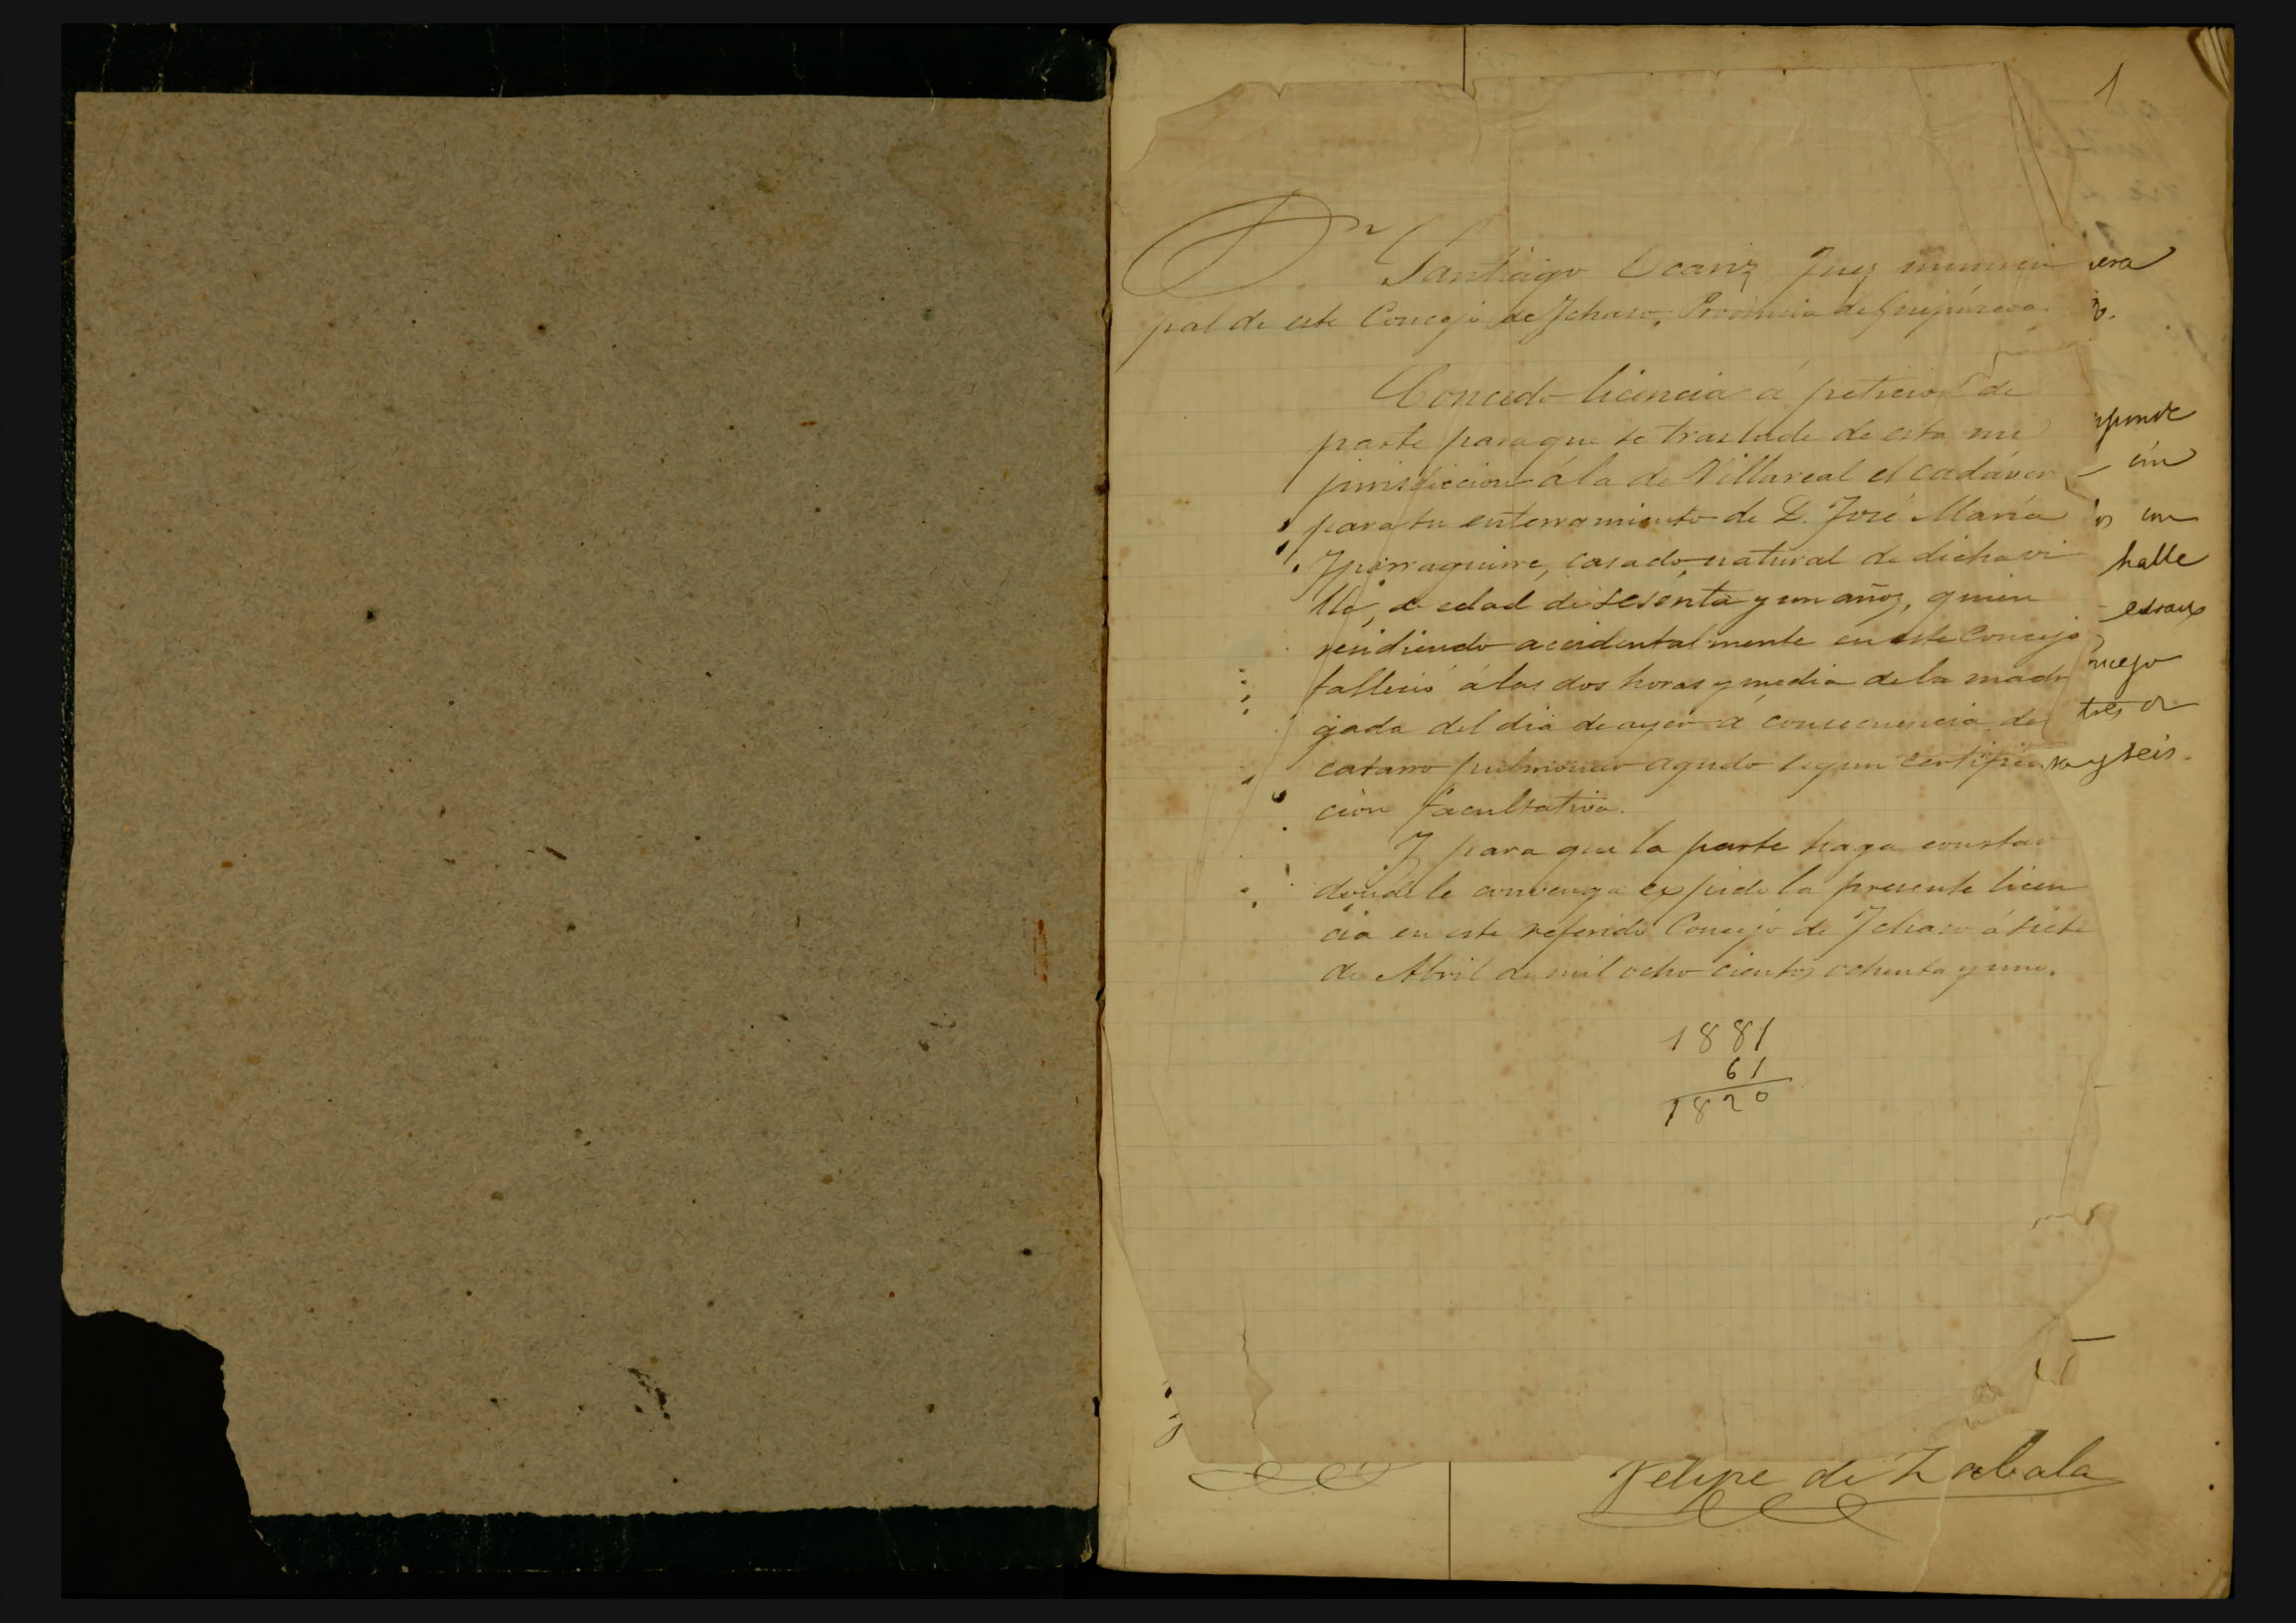 1
Dn Santiago Ecaniz Juez munici
pal de este Concejo de Ichaso, Provincia de Guipúzcoa.
Concedo licencia á peticion de
parte para que se traslade de esta mi
jurisdiccion á la de Villareal el cadáver
para su enterramiento de D. José María
Yparraguirre, casado, natural de dicha vi
lla, de edad de sesenta y un años, quien
residiendo accidentalmente en este Concejo
falleció á las dos horas y media de la madr
gada del dia de ayer á consecuencia de
catarro pulmonar agudo segun certifica
ción facultativa.
Y para que la parte haga constar
donde le convenga expido la presente licen
cia en este referido Concejo de Ichaso á siete
de Abril de mil ocho cientos ochenta y uno.
1881
61
1820
halle
tres
y seis.
Felipe de Zabala